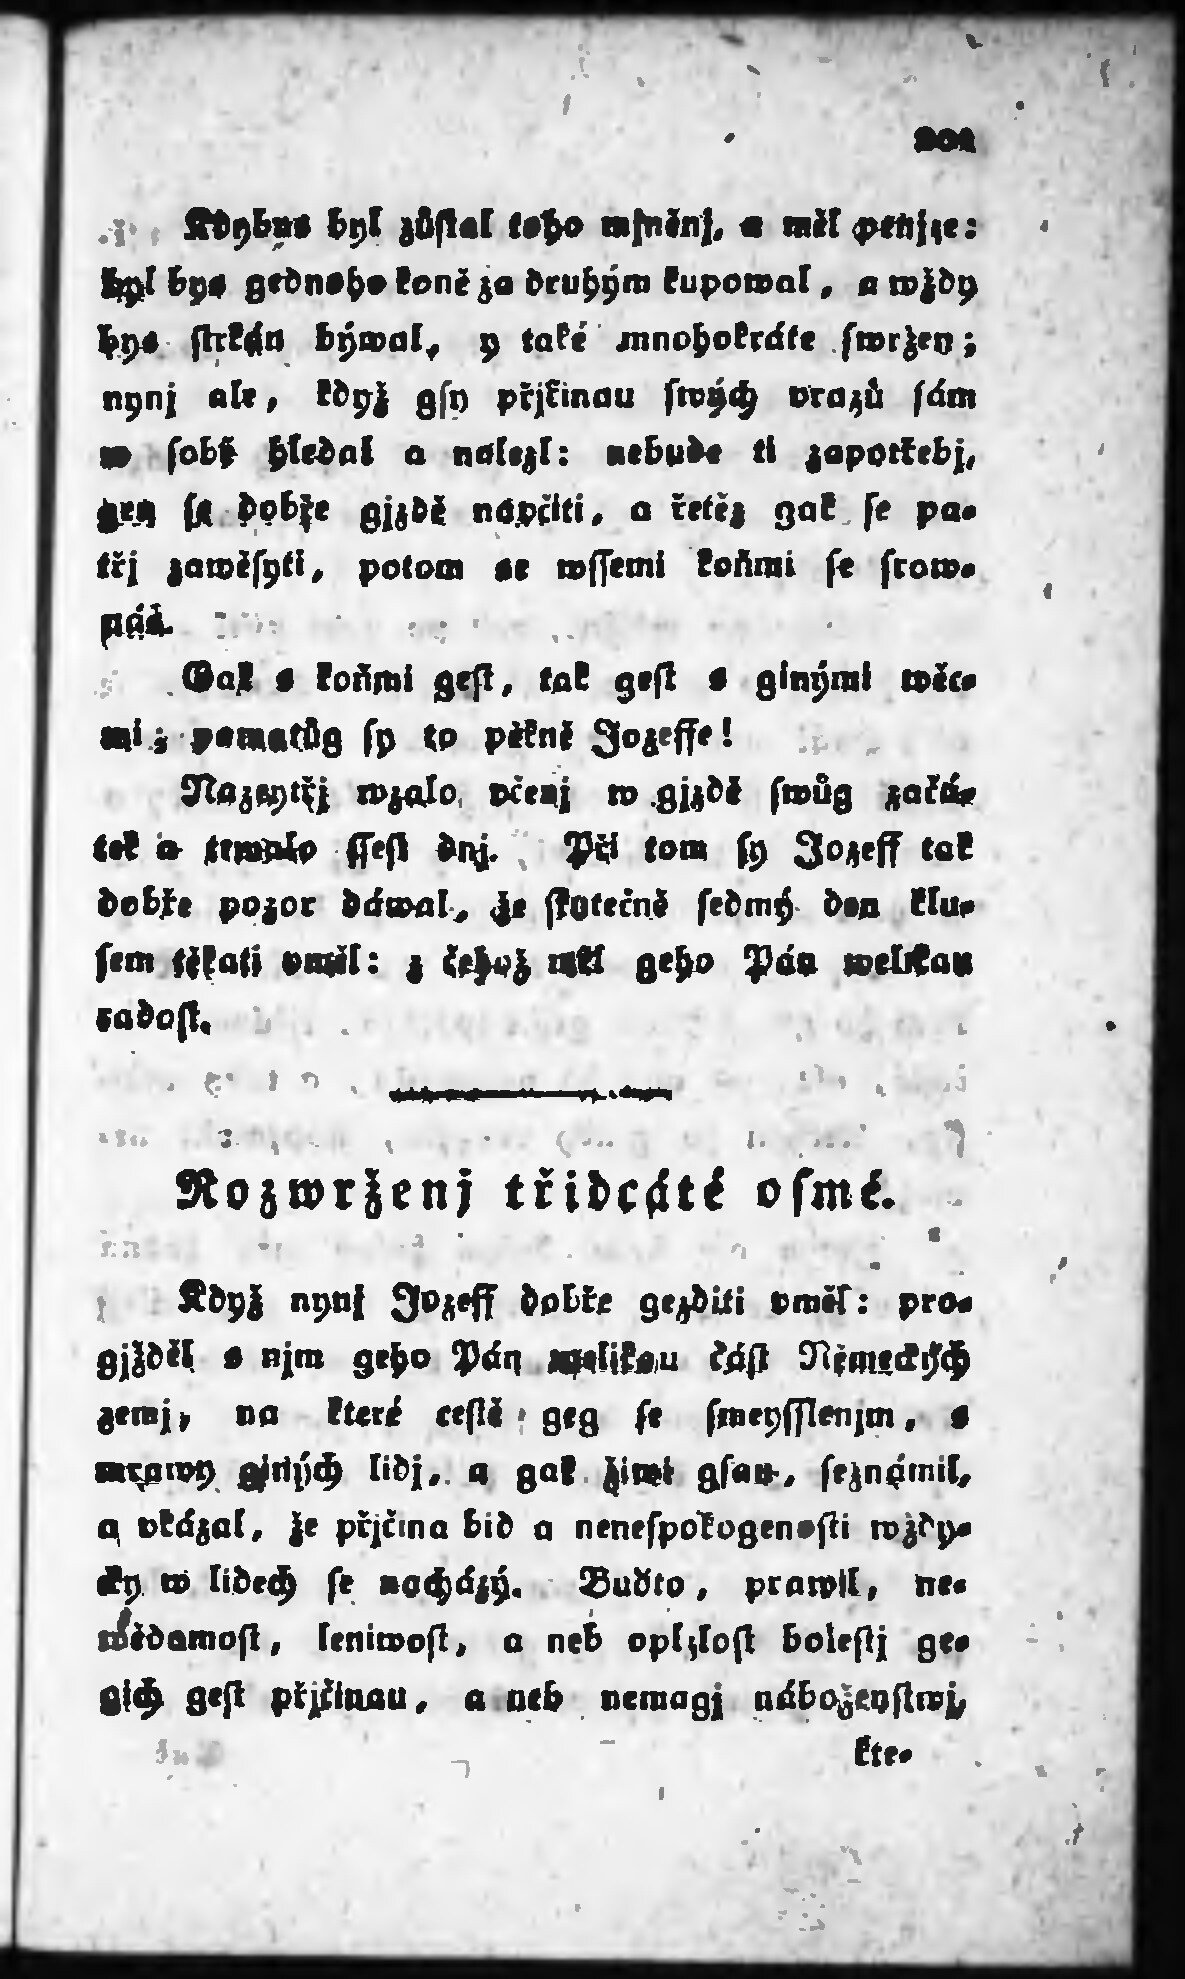 201
Kdybys byl zůstal toho mjněnj, a měl penjze:
byl bys gednoho koně za druhým kupowal, a wždy
bys strkán býwal, y také mnohokráte swržen;
nynj ale, když gsy přjčinau swých vrazů sám
w sobě hledal a nalezl: nebude ti zapotřebj,
gen se dobře gjzdě naučiti, a řetěz gak se pa-
třj zawěsyti, potom se wssemi koňmi se srow-
náš.
Gak s koňmi gest, tak gest s ginými wěc-
mi; pamatůg sy to pěkně Jozeffe!
Nazeytřj wzalo včenj w gjzdě swůg začá-
tek a trwalo ssest dnj. Při tom sy Jozeff tak
dobře pozor dáwal, že skutečně sedmý den klu-
sem těkati vměl: z čehož měl geho Pán welikau
radost.
Rozwrženj třidcáté osmé.
Když nynj Jozeff dobře gezditi vměl: pro-
gjžděl s njm geho Pán welikau část Německých
zemj, na které cestě geg se smeysslenjm, s
mrawy giných lidj, a gak žiwi gsau, seznámil,
a vkázal, že přjčina bid a nenespokogenosti wždy-
cky w lidech se nacházý. Buďto, prawil, ne-
wědamost, leniwost, a neb oplzlost bolestj ge-
gich gest přjčinau, a neb nemagj náboženstwj,
kte-